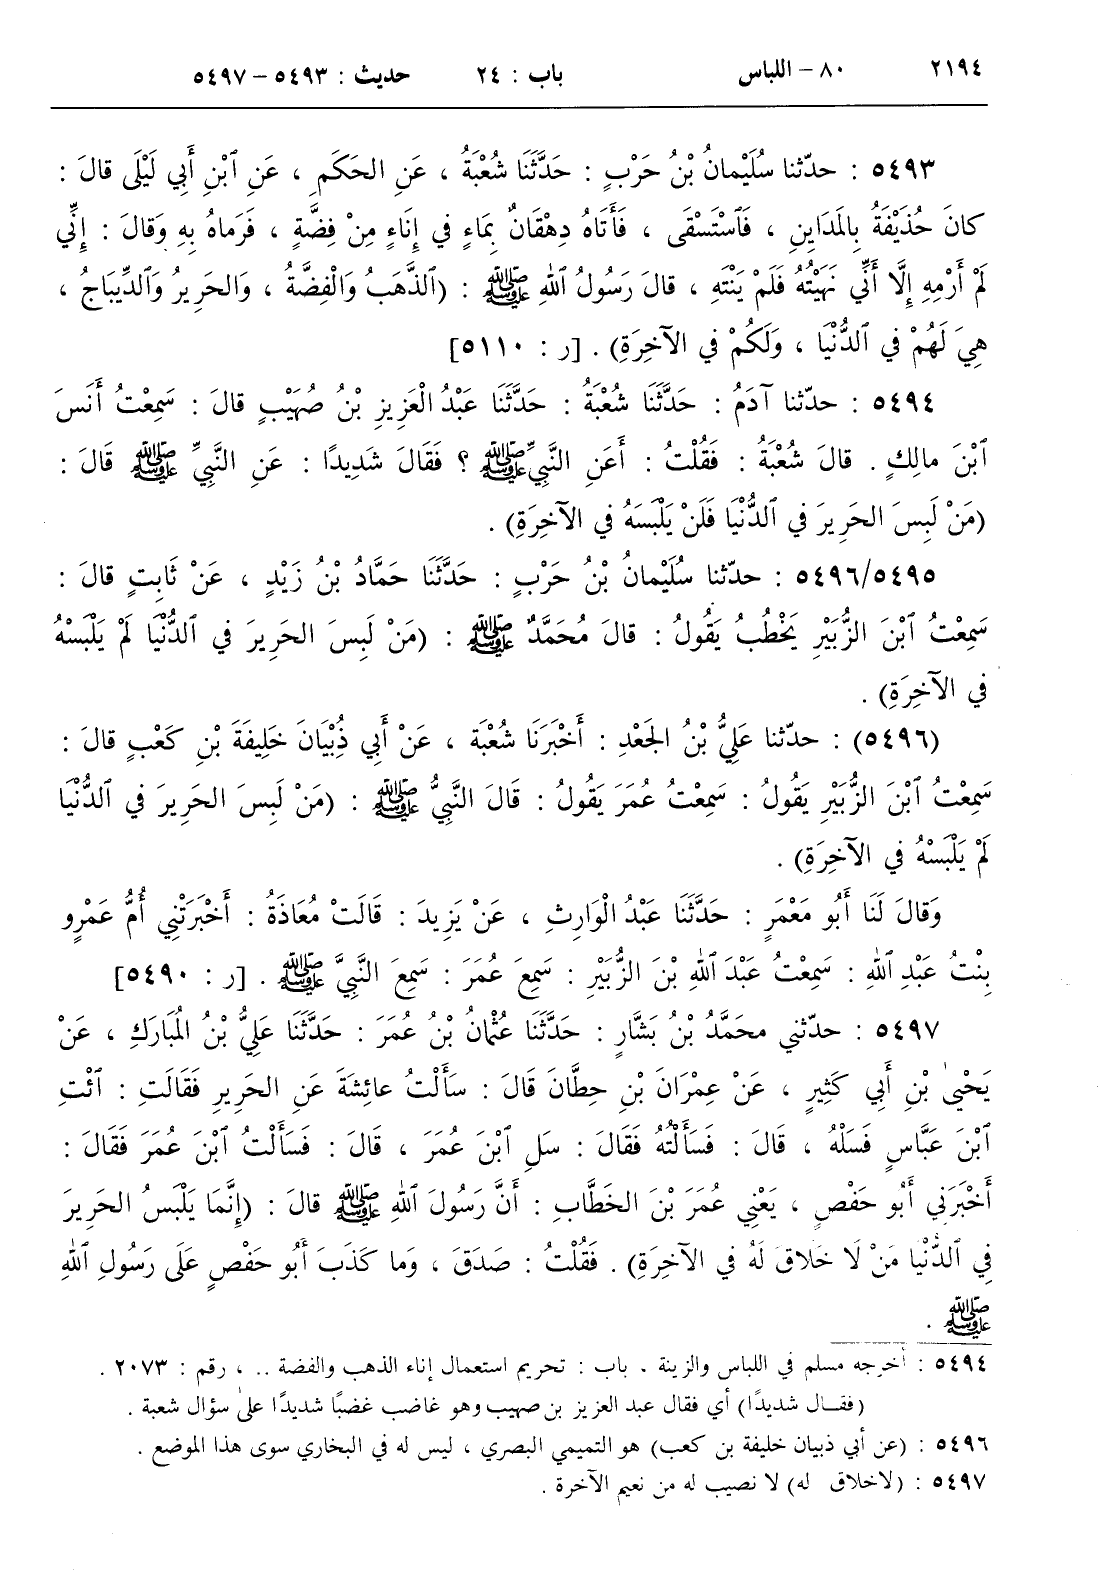 ٢١٩٤ ٨٠ – اللباس باب : ٢٤ حديث : ٥٤٩٣ – ٥٤٩٧
٥٤٩٣ : حدّثنا سُلَيْمانُ بْنُ حَرْبٍ : حَدَّثَنَا شُعْبَةُ ، عَنِ الحَكَمِ ، عَنِ ٱبْنِ أَبِي لَيْلَى قالَ :
كانَ حُذَيْفَةُ بِالمَدَايِنِ ، فَٱسْتَسْقَى ، فَأَتَاهُ دِهْقَانٌ بِمَاءٍ في إِنَاءٍ مِنْ فِضَّةٍ ، فَرَماهُ بِهِ وَقالَ : إِنِّي
لَمْ أَرْمِهِ إِلَّا أَنِّي نَهَيْتُهُ فَلَمْ يَنْتَهِ ، قالَ رَسُولُ ٱللهِ ﷺ : (ٱلذَّهَبُ وَالْفِضَّةُ ، وَالحَرِيرُ وَٱلدِّيباجُ ،
هِيَ لَهُمْ في ٱلدُّنْيَا ، وَلَكُمْ في الآخِرَةِ) . [ر : ٥١١٠]
٥٤٩٤ : حدّثنا آدَمُ : حَدَّثَنَا شُعْبَةُ : حَدَّثَنَا عَبْدُ الْعَزِيزِ بْنُ صُهَيْبٍ قالَ : سَمِعْتُ أَنَسَ
ٱبْنَ مالِكٍ . قالَ شُعْبَةُ : فَقُلْتُ : أَعَنِ النَّبِيِّ ﷺ ؟ فَقَالَ شَدِيدًا : عَنِ النَّبِيِّ ﷺ قَالَ :
(مَنْ لَبِسَ الحَرِيرَ في ٱلدُّنْيَا فَلَنْ يَلْبَسَهُ في الآخِرَةِ) .
٥٤٩٦/٥٤٩٥ : حدّثنا سُلَيْمانُ بْنُ حَرْبٍ : حَدَّثَنَا حَمَّادُ بْنُ زَيْدٍ ، عَنْ ثَابِتٍ قالَ :
سَمِعْتُ ٱبْنَ الزُّبَيْرِ يَخْطُبُ يَقُولُ : قالَ مُحَمَّدٌ ﷺ : (مَنْ لَبِسَ الحَرِيرَ في ٱلدُّنْيَا لَمْ يَلْبَسْهُ
في الآخِرَةِ) .
(٥٤٩٦) : حدّثنا عَلِيُّ بْنُ الجَعْدِ : أَخْبَرَنَا شُعْبَة ، عَنْ أَبِي ذُبْيَانَ خَلِيفَةَ بْنِ كَعْبٍ قالَ :
سَمِعْتُ ٱبْنَ الزُّبَيْرِ يَقُولُ : سَمِعْتُ عُمَرَ يَقُولُ : قَالَ النَّبِيُّ ﷺ : (مَنْ لَبِسَ الحَرِيرَ في ٱلدُّنْيَا
لَمْ يَلْبَسْهُ في الآخِرَةِ) .
وَقالَ لَنَا أَبُو مَعْمَرٍ : حَدَّثَنَا عَبْدُ الْوَارِثِ ، عَنْ يَزِيدَ : قَالَتْ مُعَاذَةُ : أَخْبَرَتْنِي أُمُّ عَمْرٍو
بِنْتُ عَبْدِ ٱللهِ : سَمِعْتُ عَبْدَ ٱللهِ بْنَ الزُّبَيْرِ : سَمِعَ عُمَرَ : سَمِعَ النَّبِيَّ ﷺ . [ر : ٥٤٩٠]
٥٤٩٧ : حدّثني محَمَّدُ بْنُ بَشَّارٍ : حَدَّثَنَا عُثْمانُ بْنُ عُمَرَ : حَدَّثَنَا عَلِيُّ بْنُ المُبَارَكِ ، عَنْ
يَحْيىٰ بْنِ أَبِي كَثِيرٍ ، عَنْ عِمْرَانَ بْنِ حِطَّانَ قَالَ : سَأَلْتُ عائِشَةَ عَنِ الحَرِيرِ فَقَالَتِ : ٱئْتِ
ٱبْنَ عَبَّاسٍ فَسَلْهُ ، قَالَ : فَسَأَلْتُهُ فَقَالَ : سَلِ ٱبْنَ عُمَرَ ، قَالَ : فَسَأَلْتُ ٱبْنَ عُمَرَ فَقَالَ :
أَخْبَرَنِي أَبُو حَفْصٍ ، يَعْنِي عُمَرَ بْنَ الخَطَّابِ : أَنَّ رَسُولَ ٱللهِ ﷺ قالَ : (إِنَّمَا يَلْبَسُ الحَرِيرَ
فِي ٱلدُّنْيَا مَنْ لَا خَلَاقَ لَهُ في الآخِرَةِ) . فَقُلْتُ : صَدَقَ ، وَما كَذَبَ أَبُو حَفْصٍ عَلَى رَسُولِ ٱللهِ
ﷺ .
٥٤٩٤ : أخرجه مسلم في اللباس والزينة . باب : تحريم استعمال إناء الذهب والفضة .. ، رقم : ٢٠٧٣ .
(فقـال شديدًا) أي فقال عبد العزيز بن صهيب وهو غاضب غضبًا شديدًا علىٰ سؤال شعبة .
٥٤٩٦ : (عن أبي ذبيان خليفة بن كعب) هو التميمي البصري ، ليس له في البخاري سوى هذا الموضع .
٥٤٩٧ : (لاخلاق له) لا نصيب له من نعيم الآخرة .